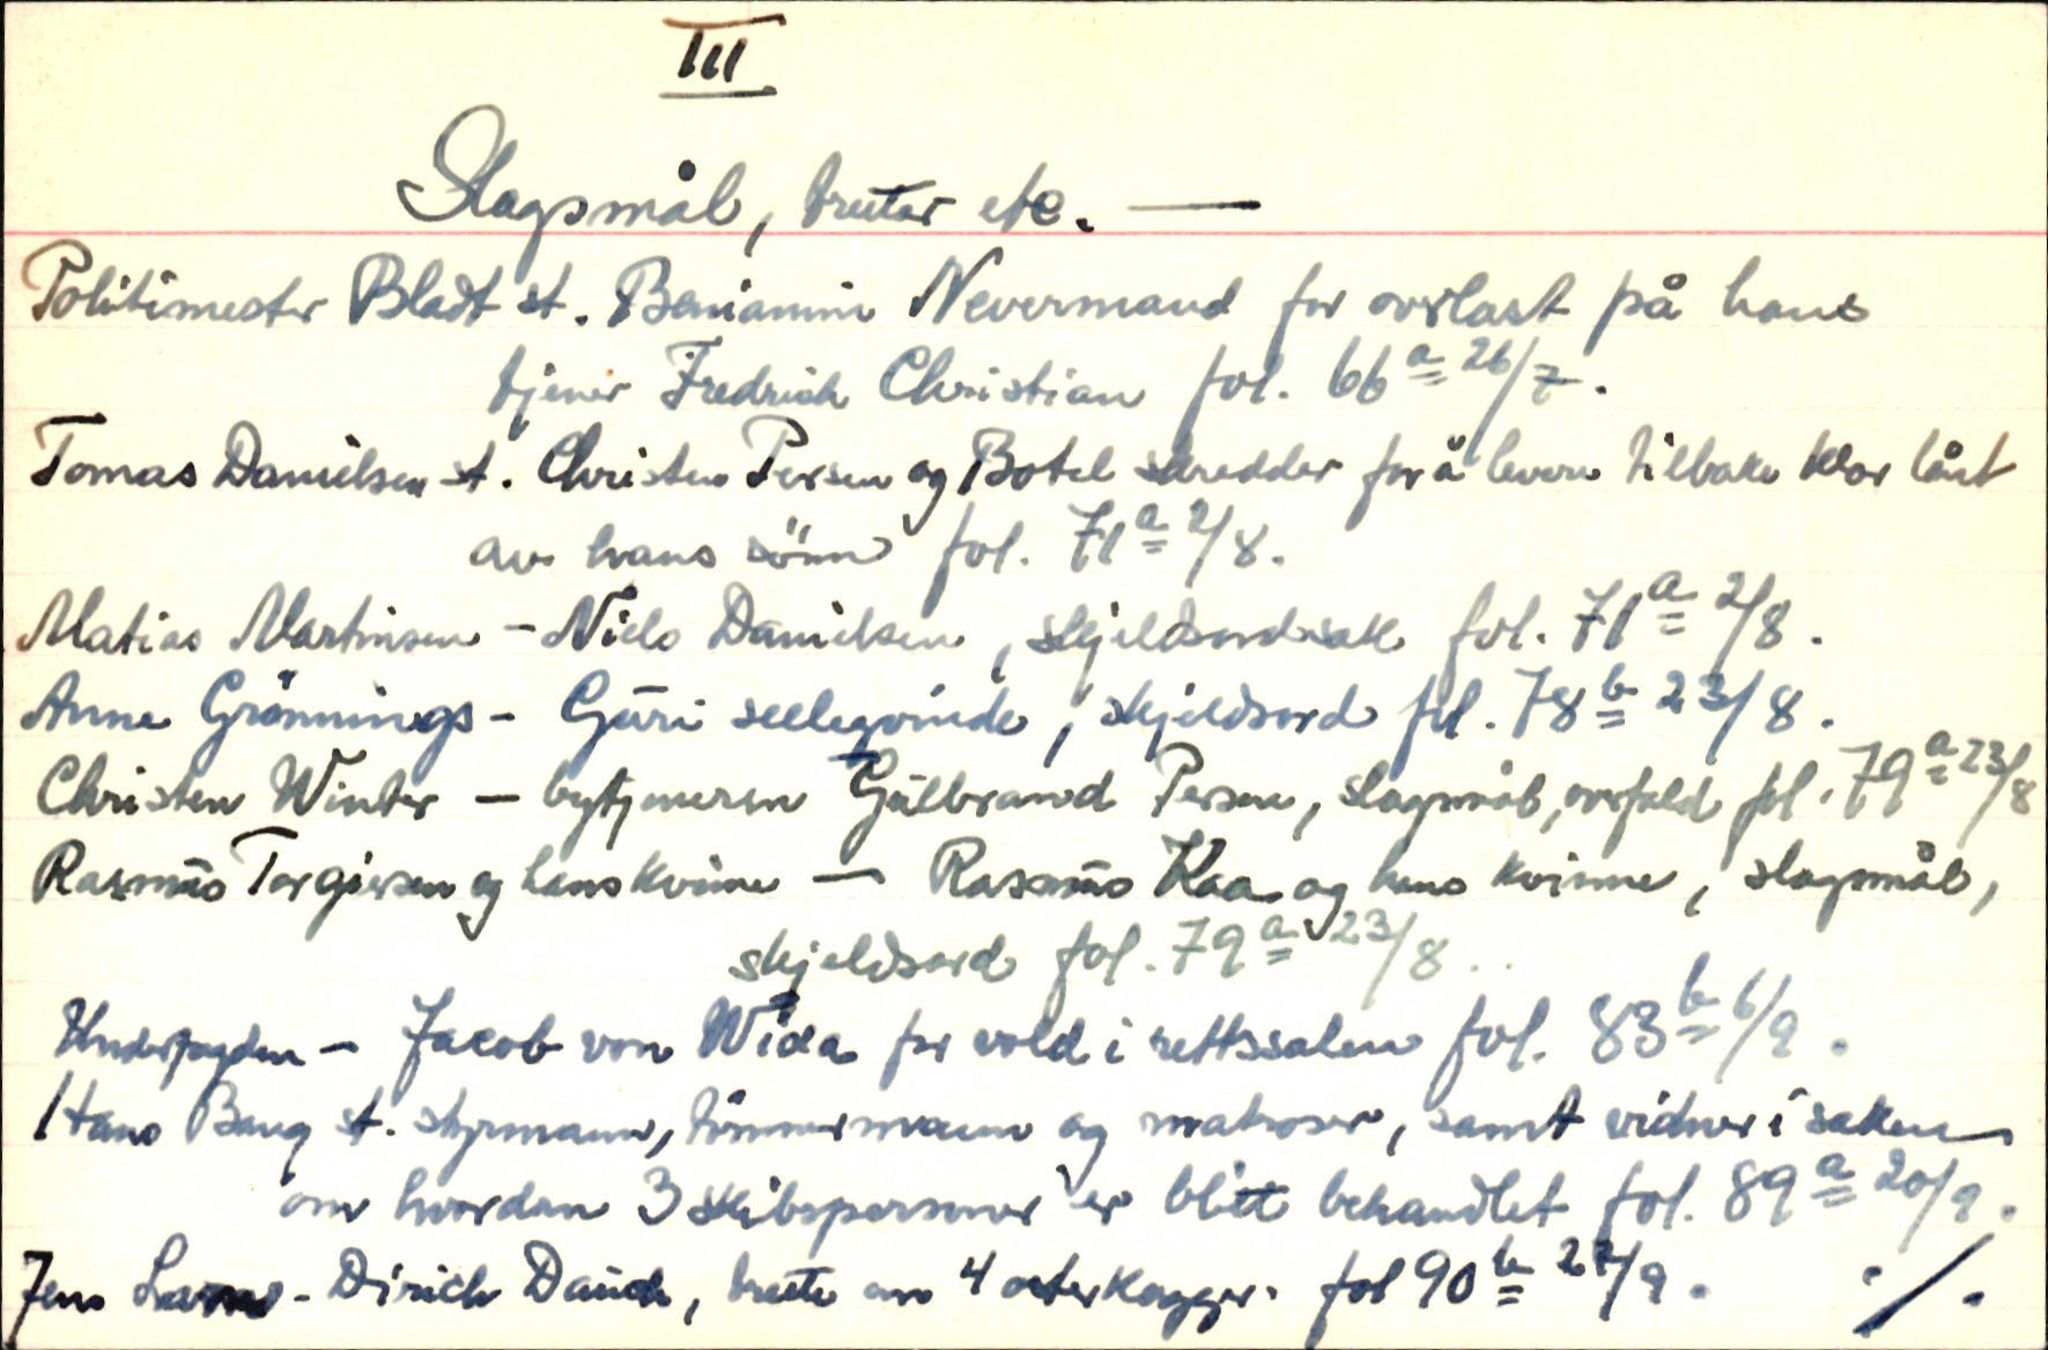 III
Slagsmål, tretter etc. —
Politimester Bladt st. Beniamin Nevermand for overlast på hans
tjener Fredrich Christian fol. 66a 26/7.
Tomas Danielsen st. Christen Persen og Botel skredder for å levere tilbake klær lånt
av hans sönn fol. 71a 2/8.
Matias Martinsen - Niels Danielsen, skjeldsordsak fol. 71a 2/8.
Anne Grönnings - Gŭri seeleqvinde, skjeldsord fol. 78b 23/8.
Christen Winter — bytjeneren Gŭlbrand Persen, slagsmål, overfald fol. 79a 23/8
Rasmŭs Torgiersen og hans kvinne — Rasmŭs Kaa og hans kvinne, slagsmål,
skjeldsord fol. 79a 23/8.
Underfogden - Jacob von Wida for vold i rettssalen fol. 83b 6/9.
Hans Bang st. styrmann, tömmermann og matroser, samt vidner i saken
om hvordan 3 skibspersoner er blitt behandlet fol. 89a 20/9.
Jens - Dirich, trette om 4 fol 90b 27/9. ./.